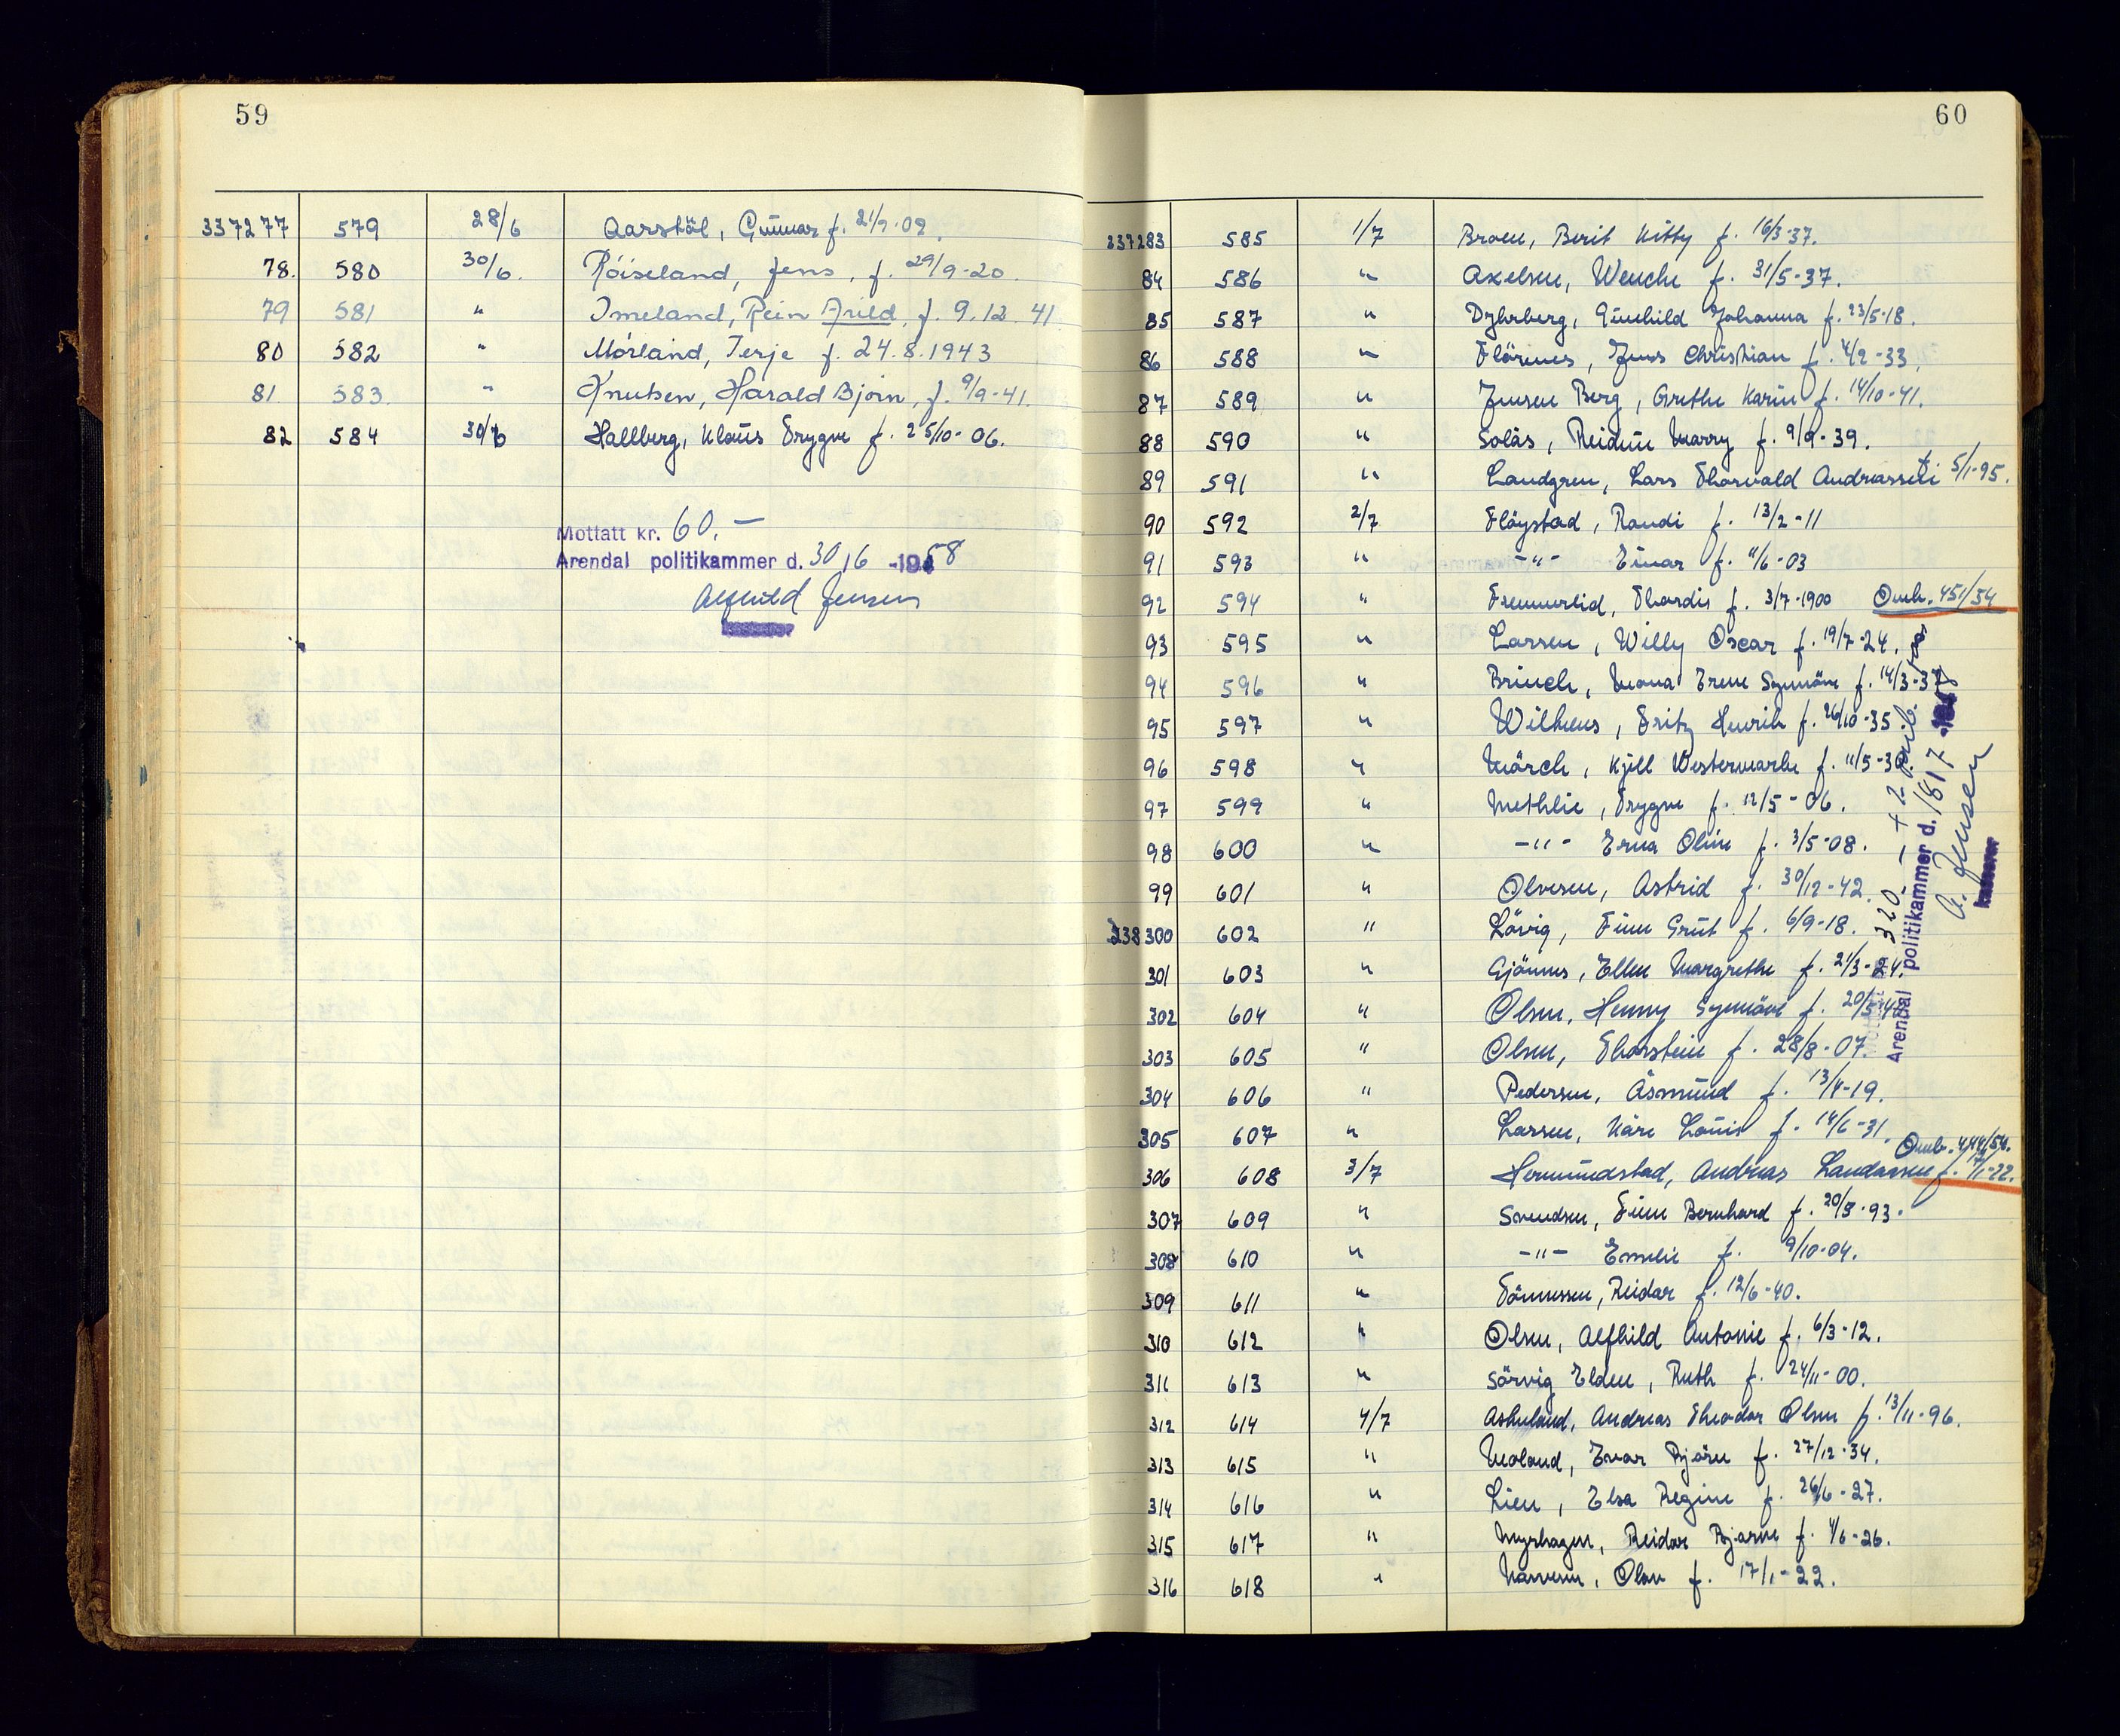 59
337277 579 28/6 Aarstöl, Gunnar f. 21/9.09.
78. 580 30/6. Röiseland, Jens, f. 29/9-20.
79 581 " Imeland, Rein Arild, f. 9.12.41
80 582 " Mörland, Terje f. 24.8.1943
81 583. " Knutsen, Harald Bjørn, f. 9/9-41.
82 584 30/6 Hallberg, Klaus Trygve f. 25/10-06.
Mottatt kr. 60.—
Arendal politikammer d. 30/6 -1958
Alfhild Jensen
60
337283 585 1/7 Broen, Berit Kitty f. 16/3-37.
84 586 " Axelsen, Wenche f. 31/5-37.
85 587 " Dyhrberg, Gunhild Johanna f. 23/5-18.
86 588 " Flörenes, Jens Christian f. 4/2-33.
87 589 " Jensen Berg, Grethe Karin f. 14/10-41.
88 590 " Solås, Reidun Marry f. 9/9-39.
89 591 " Landgren, Lars Thorvald f. 5/1-95.
90 592 2/7 Flöystad, Randi f. 13/2-11
91 593 " -"- Einar f. 11/6-03
92 594 " Tordis f. 3/7-1900 Omb. 451/54
93 595 " Larsen, Willy Oscar f. 19/7-24.
94 596 " Brinch, Mona Irene Synnöve f. 14/3-37
95 597 " Wilhelms, Fritz Henrik f. 26/10-35.
96 598 " Mörch, Kjell Westermark f. 11/5-30.
97 599 " Methlie, Trygve f. 12/5-06.
98 600 " -"- Erna Oline f. 3/5-08.
99 601 " Olvesen, Astrid f. 30/12-42.
338300 602 " Lövig, Finn Grut f. 6/9-18.
301 603 " Gjönnes, Ellen Margrethe f. 21/3-24.
302 604 " Olsen, Henny Synnöve f. 20/5-
303 605 " Olsen, Thorstein f. 28/8-07.
304 606 " Pedersen, Åsmund f. 13/4-19.
305 607 " Larsen, Kåre Louis f. 14/6-31.
Omb. 444/54.
306 608 3/7 Hermundstad, Andreas f. -22.
307 609 " Svendsen, Finn Bernhard f. 20/5-93.
308 610 " -"- Emelie f. 9/10-04.
309 611 " Tönnessen, Reidar f. 12/6-40.
310 612 " Olsen, Alfhild Antonie f. 6/3-12.
311 613 " Sörvig Elden, Ruth f. 24/11-00.
312 614 4/7 Askeland, Andreas Theodor Olsen f. 13/11-96.
313 615 " Moland, Ivar Björn f. 27/12-34.
314 616 " Lien, Elsa Regine f. 26/6-27.
315 617 " Myrhagen, Reidar Bjarne f. 4/6-26.
316 618 " Olav f. 17/1-22.
320.— + 2
Arendal politikammer d. 18/7
A. Jensen